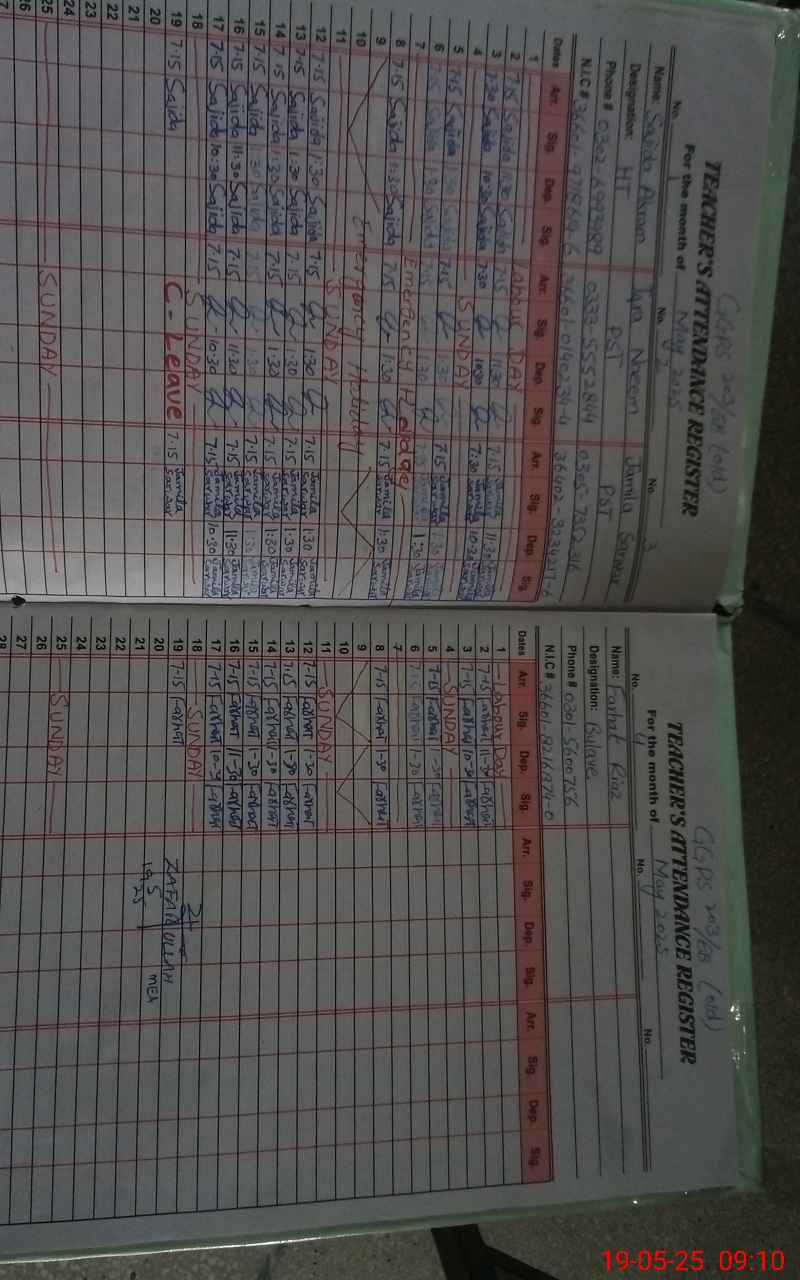 GGPS 203/GB (old)
TEACHER'S ATTENDANCE REGISTER
For the month of May 2025
No. 1 No. 2 No 3
Name: Sajida Iqra Naeem Jamila Sarwar
Designation: HT PST PST
Phone # 0333-5552844
N.I.C #
Dates Arr. Sig. Dep. Sig. Arr. Sig. Dep. Sig. Arr. Sig. Dep. Sig.
1 Labour DAY
2 7.15 Sajida 11:30 Sajida 7.15 11:30 7.15 Jamila Sarwar 11:30 Jamila Sarwar
3 7:30 Sajida 10:30 Sajida 7:30 10:30 7:30 Jamila Sarwar 10:30 Jamila Sarwar
4 SUNDAY
5 7:15 Sajida 1:30 Sajida 7:15 1:30 7.15 Jamila Sarwar 1:30 Jamila Sarwar
6 7:15 Sajida 1:30 Sajida 7:15 11:30 7:15 Jamila Sarwar 1:30 Jamila Sarwar
7 Emergency
8 7.15 Sajida 1:30 Sajida 7.15 1:30 7.15 Jamila Sarwar 1:30 Jamila Sarwar
9
10 Emergency Holiday
11 SUNDAY
12 7.15 Sajida 1:30 Sajida 7.15 1:30 7.15 Jamila Sarwar 1:30 Jamila Sarwar
13 7.15 Sajida 1:30 Sajida 7.15 1:30 7.15 Jamila Sarwar 1:30 Jamila Sarwar
14 7.15 Sajida 1:30 Sajida 7.15 1:30 7.15 Jamila Sarwar 1:30 Jamila Sarwar
15 7.15 Sajida 1:30 Sajida 7.15 1:30 7.15 Jamila Sarwar 1:30 Jamila Sarwar
16 7.15 Sajida 11:30 Sajida 7.15 11:30 7.15 Jamila Sarwar 11:30 Jamila Sarwar
17 7.15 Sajida 10:30 Sajida 7.15 10:30 7.15 Jamila Sarwar 10:30 Jamila Sarwar
18 SUNDAY
19 7.15 Sajida C-Leave 7.15 Jamila Sarwar
20
21
22
23
24
25 SUNDAY
26
GGPS 203/GB (old)
TEACHER'S ATTENDANCE REGISTER
For the month of May 2025
No. 4 No. No.
Name: Farhat Riaz
Designation:
Phone # 0301-5600756
N.I.C #
Dates Arr. Sig. Dep. Sig. Arr. Sig. Dep. Sig. Arr. Sig. Dep. Sig.
1 Labour Day
2 7-15 Farhat 11-30 Farhat
3 7-15 Farhat 10-30 Farhat
4 SUNDAY
5 7-15 Farhat 1-30 Farhat
6 7-15 Farhat 1-30 Farhat
7
8 7-15 Farhat 1-30 Farhat
9
10
11 SUNDAY
12 7-15 Farhat 1-30 Farhat
13 7.15 Farhat 1-30 Farhat
14 7-15 Farhat 1-30 Farhat
15 7-15 Farhat 1-30 Farhat
16 7-15 Farhat 11-30 Farhat
17 7-15 Farhat 10-30 Farhat
18 SUNDAY
19 7-15 Farhat
ZAFAR ULLAH MEA
20
19.5.25
21
22
23
24
25 SUNDAY
26
27
28
19-05-25 09:10